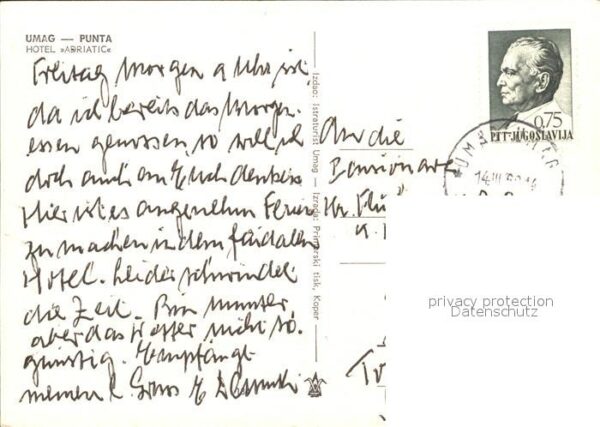 UMAG — PUNTA
HOTEL »ADRIATIC«
Freitag morgen 9 Uhr ist
da ich bereits das Morgen-
essen genossen, so will ich
doch auch an Euch denken
Hier ist es angenehm Ferien
zu machen in dem
Hotel. Leider schwindet
die Zeit. Bin munter,
aber das Wetter nicht so
günstig. Empfangt
meinen l. Gruss
Izdao: Istraturist Umag — Izrada: Primorski tisk, Koper
0,75
PTT-JUGOSLAVIJA
14.III
An die
Pensionart
Hr.
privacy protection
Datenschutz